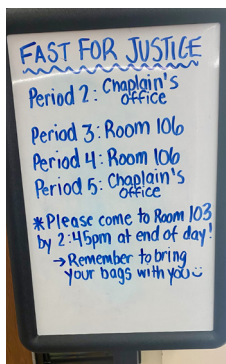 FAST FOR JUSTICE
Period 2: Chaplain's
office
Period 3: Room 106
Period 4: Room 106
Period 5: Chaplain's
Office
*Please come to Room 103
by 2:45pm at end of day!
→ Remember to bring
your bags with you☺